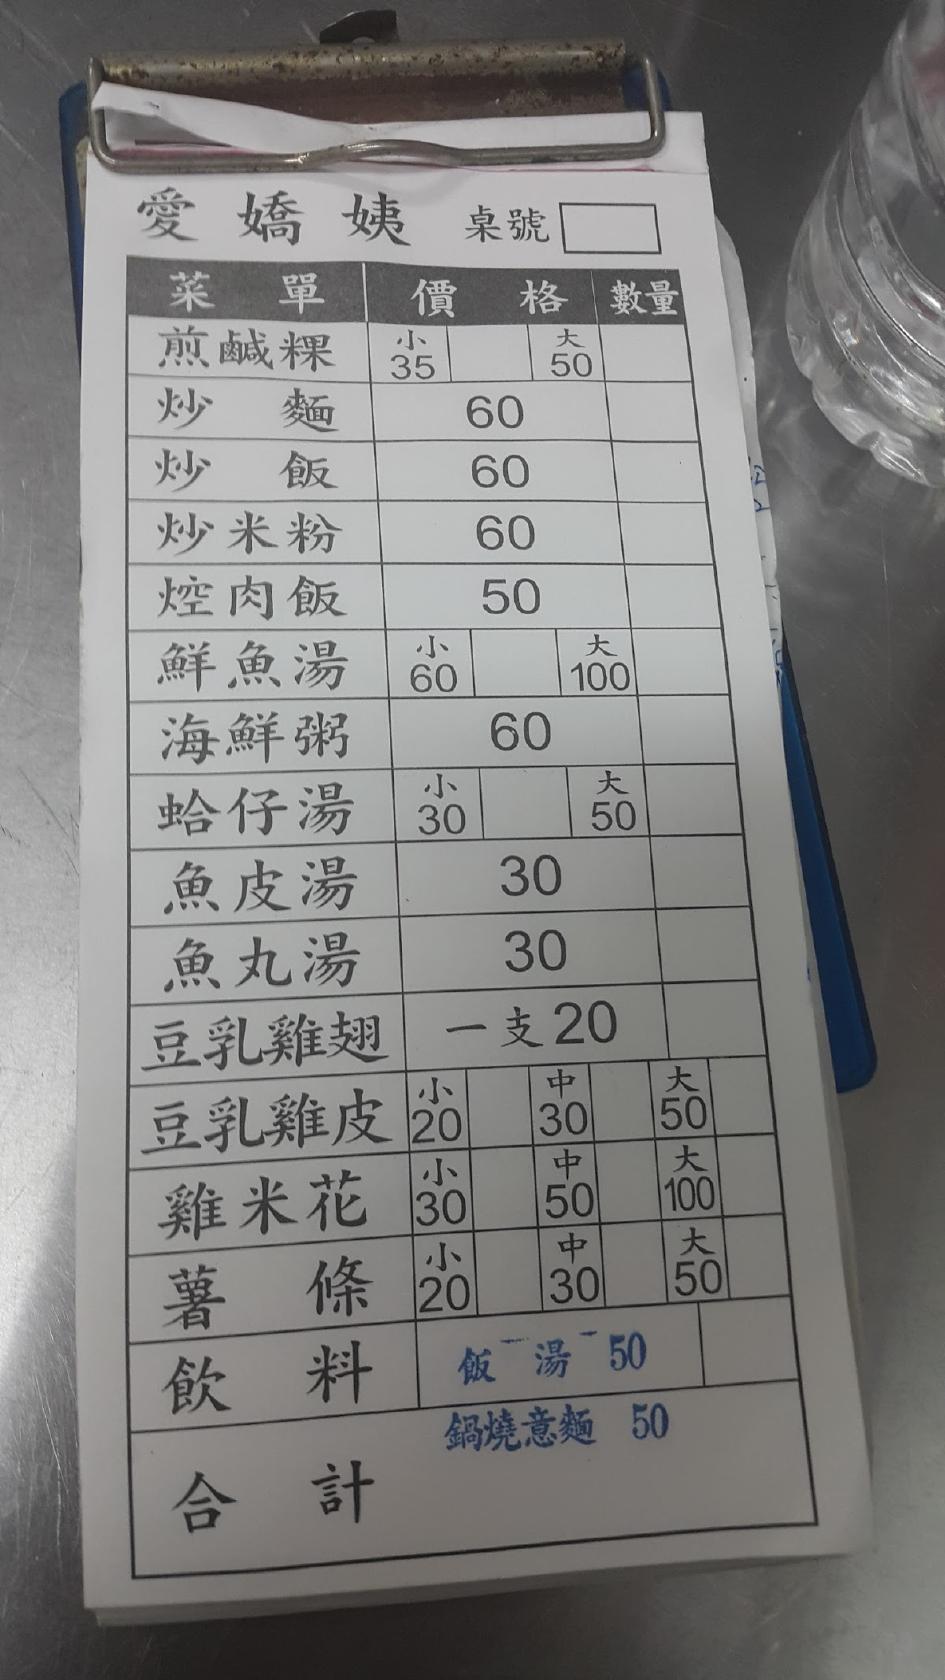 愛嬌姨 桌號
菜單 價格 數量
煎鹹粿 小35 大50
炒麵 60
炒飯 60
炒米粉 60
焢肉飯 50
鮮魚湯 小60 大100
海鮮粥 60
蛤仔湯 小30 大50
魚皮湯 30
魚丸湯 30
豆乳雞翅 一支20
豆乳雞皮 小20 中30 大50
雞米花 小30 中50 大100
薯條 小20 中30 大50
飲料 飯 湯 50
鍋燒意麵 50
合計